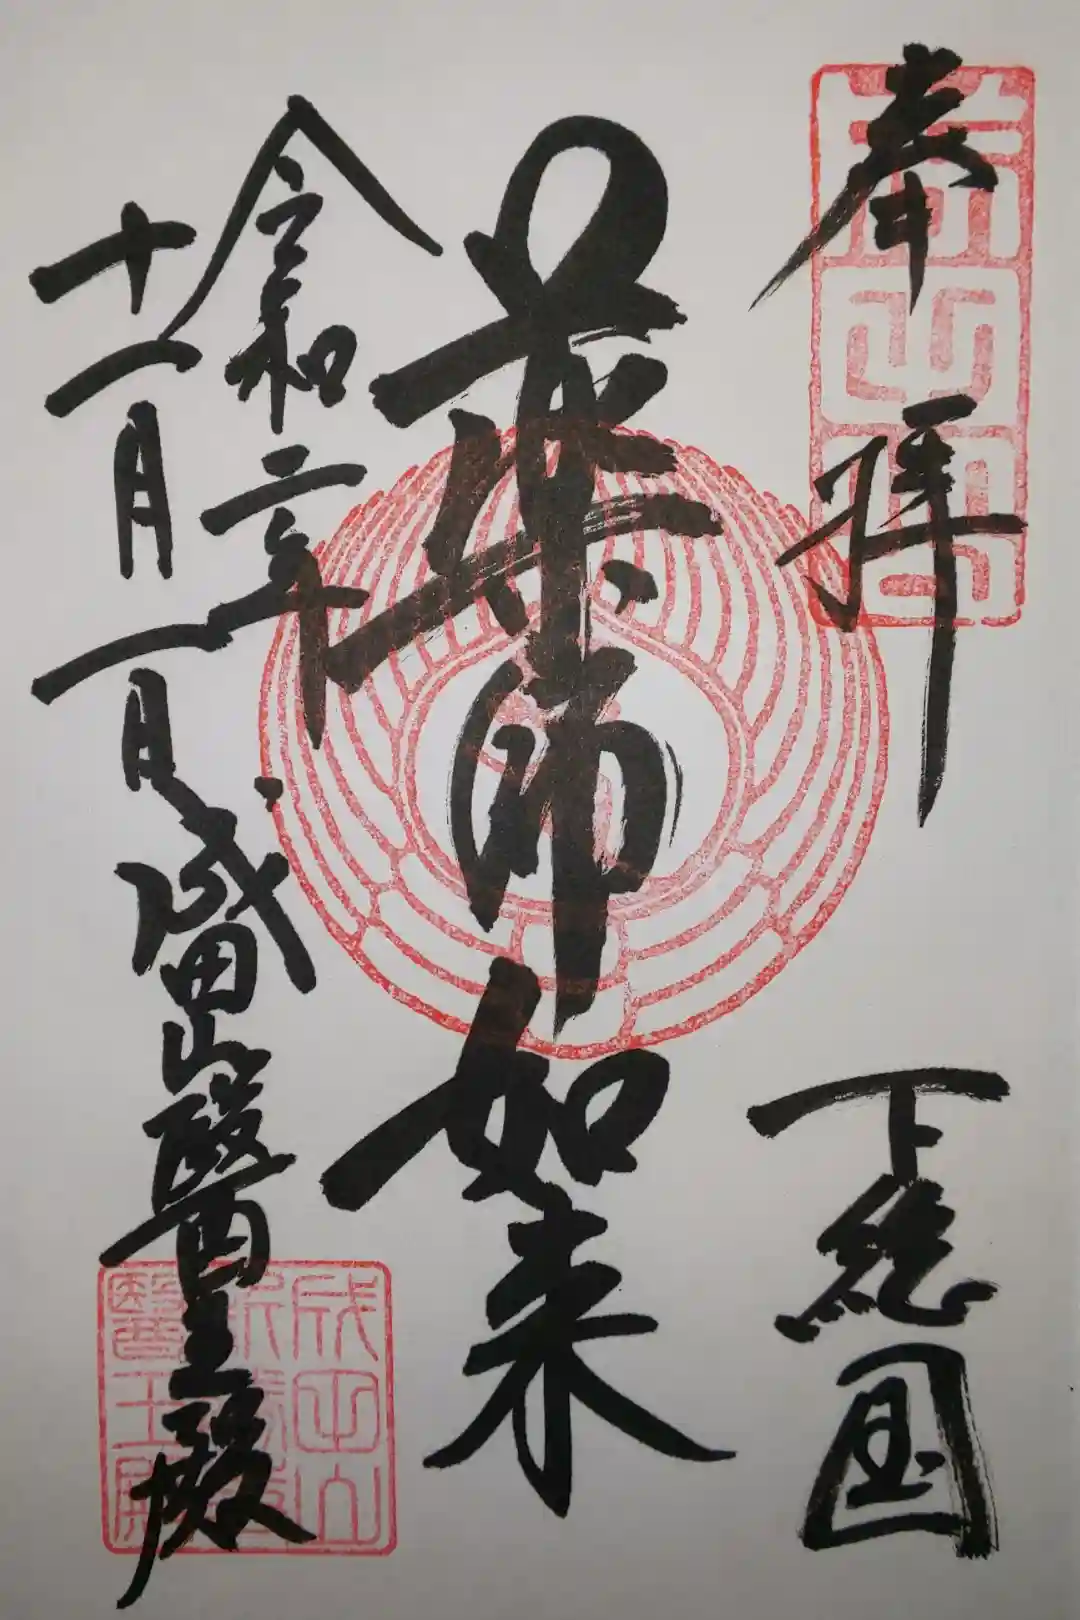 奉拝
下総国
薬師如来
令和二年
十一月一日
成田山醫王殿
成田山
醫王殿